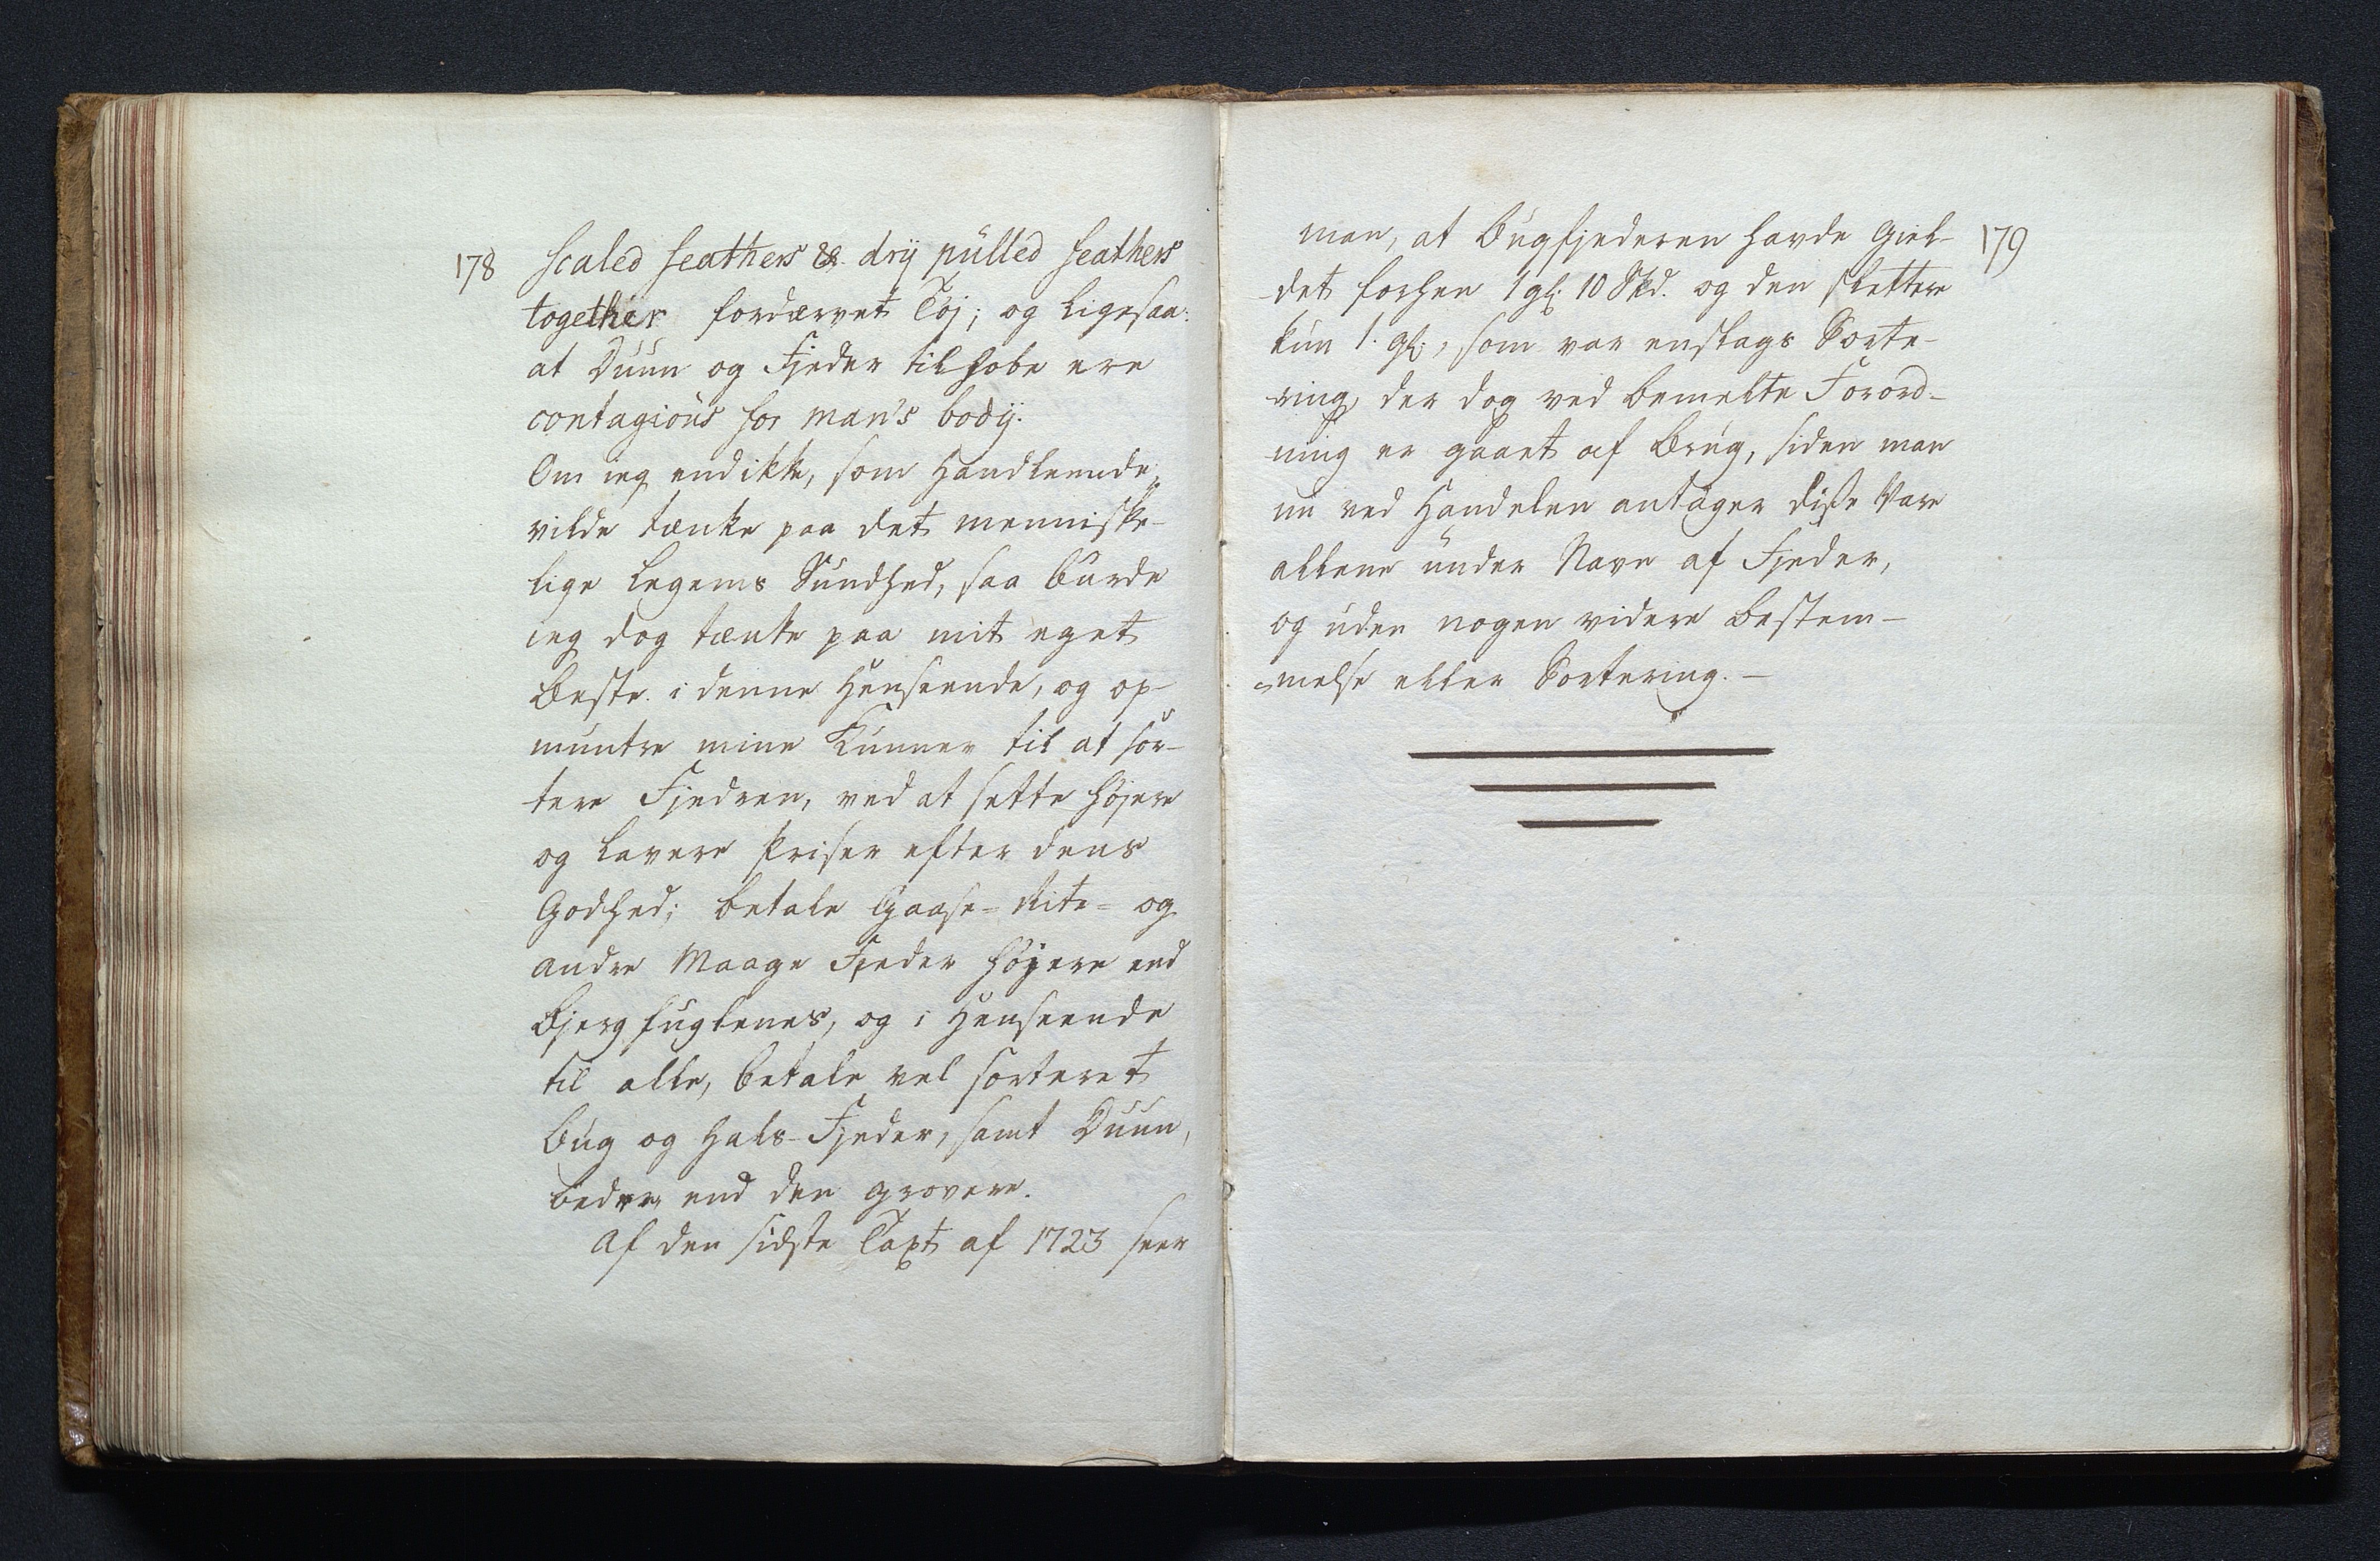 178
scaled feathers & drÿ pülled feathers
together fordærvet Tøj; og ligesaa:
at Duun og Fjeder tilhobe ere
contagioüs for man's bodÿ.
Om ieg end ikke, som Handlende,
vilde tænke paa det menniske-
lige Legems Sundhed, saa burde
ieg dog tænke paa mit eget
Beste i denne Henseende, og op-
muntre mine Kunner til at sor-
tere Fjedren, ved at sette højere
og lavere Priser efter dens
Godhed; betale Gaase- Rite- og
andre Maage Fjeder høyere end
Bjergfuglenes, og i Henseende
til alle, betale vel sorteret
Bug og Hals-Fjeder, samt Duun,
bedre, end den grovere.
Af den sidste Taxt af 1723 seer
179
man, at Bugfjederen havde Giel-
det forhen 1 gl: 10 Skd. og den slettere
kun 1. gl:, som var enslags Sorte-
ring, der dog ved bemelte Forord-
ning er gaaet af Brug, siden man
nu ved Handelen antager disse Vare
allene under Navn af Fjeder,
og uden nogen videre Bestem-
melse eller Sortering. -